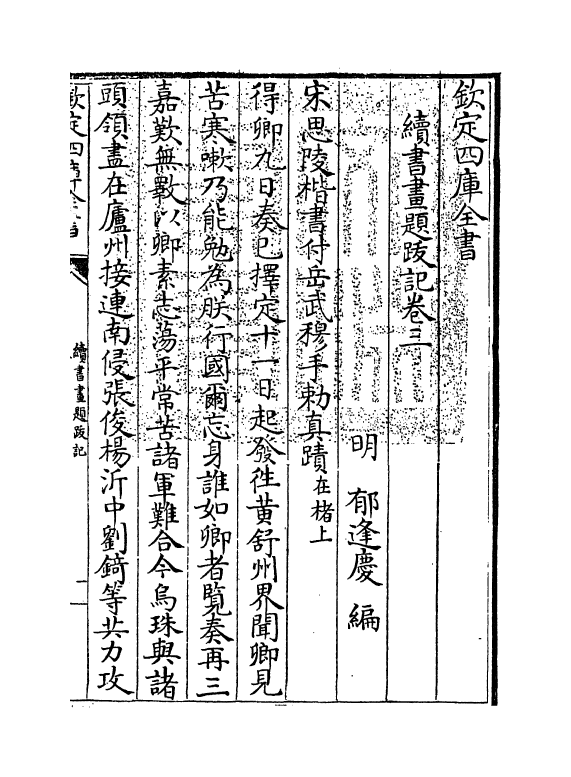 欽定四庫全書
續書畫題跋記卷三
明　郁逢慶　編
宋思陵楷書付岳武穆手勅真蹟在楮上
得卿九日奏已擇定十一日起發徃黄舒州界聞卿見
苦寒嗽乃能勉為朕行國爾忘身誰如卿者覧奏再三
嘉歎無斁以卿素志蕩平常苦諸軍難合今烏珠與諸
頭領盡在廬州接連南侵張俊楊沂中劉錡等共力攻
欽定四庫全書
續書畫題跋記
一